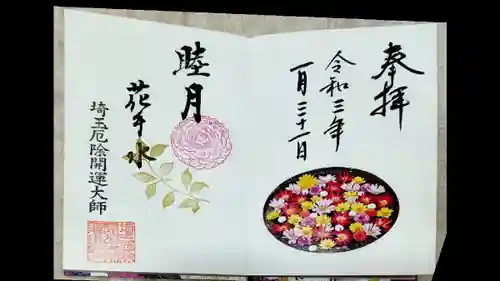 奉拝
令和三年
一月三十一日
睦月
花手水
埼玉厄除開運大師